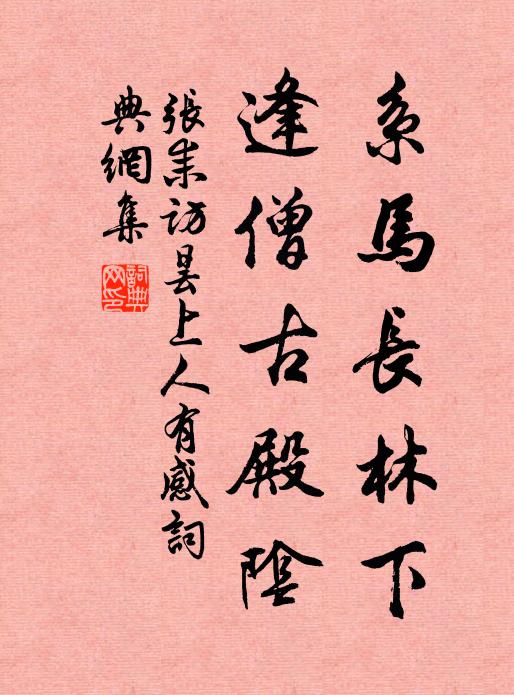 系馬長林下
逢僧古殿陰
張耒訪曇上人有感詞
典網集
詞典
网印